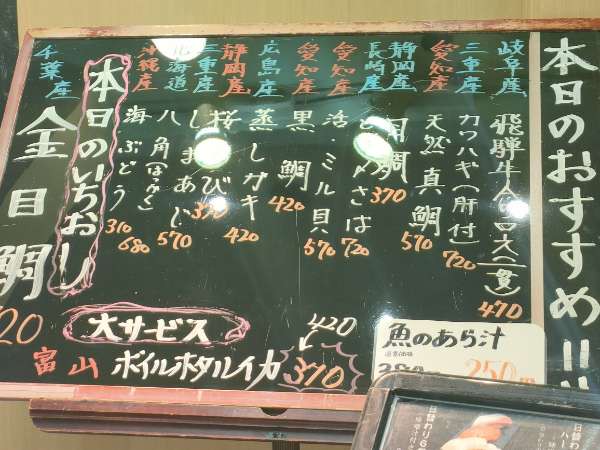 本日のおすすめ!!
岐阜産
飛騨牛
(一貫)
470
三重産
カワハギ(肝付)
720
愛知産
天然真鯛
570
静岡産
鯛
370
長崎産
さば
720
愛知産
活・ミル貝
570
愛知産
黒鯛
420
広島産
蒸しカキ
420
静岡産
桜
び
370
三重産
しまあじ
570
北海道
八角
680
沖縄産
海ぶどう
310
本日のいちおし
千葉産
金目鯛
20
大サービス
富山 ボイルホタルイカ
420
370
魚のあら汁
通常価格
380
250円
日替わり